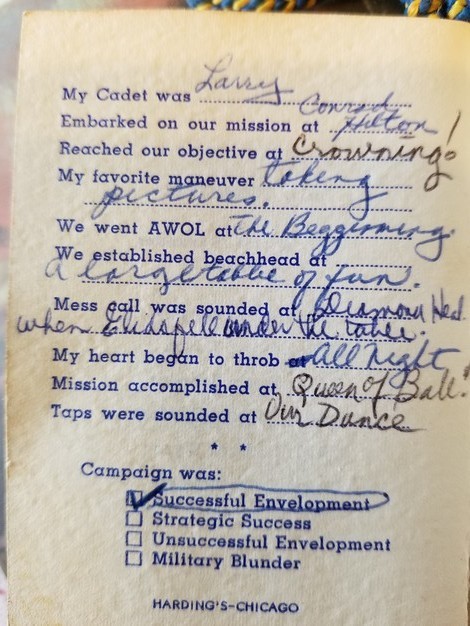 My Cadet was Larry
Embarked on our mission at Conrad Hilton!
Reached our objective at Crowning!
My favorite maneuver taking
pictures.
We went AWOL at the Beggining.
We established beachhead at
a large table of fun.
Mess call was sounded at Diamond Head
when fell under the table.
My heart began to throb all night
Mission accomplished at Queen of Ball!
Taps were sounded at Our Dance
* *
Campaign was:
Successful Envelopment
Strategic Success
Unsuccessful Envelopment
Military Blunder
HARDING'S-CHICAGO